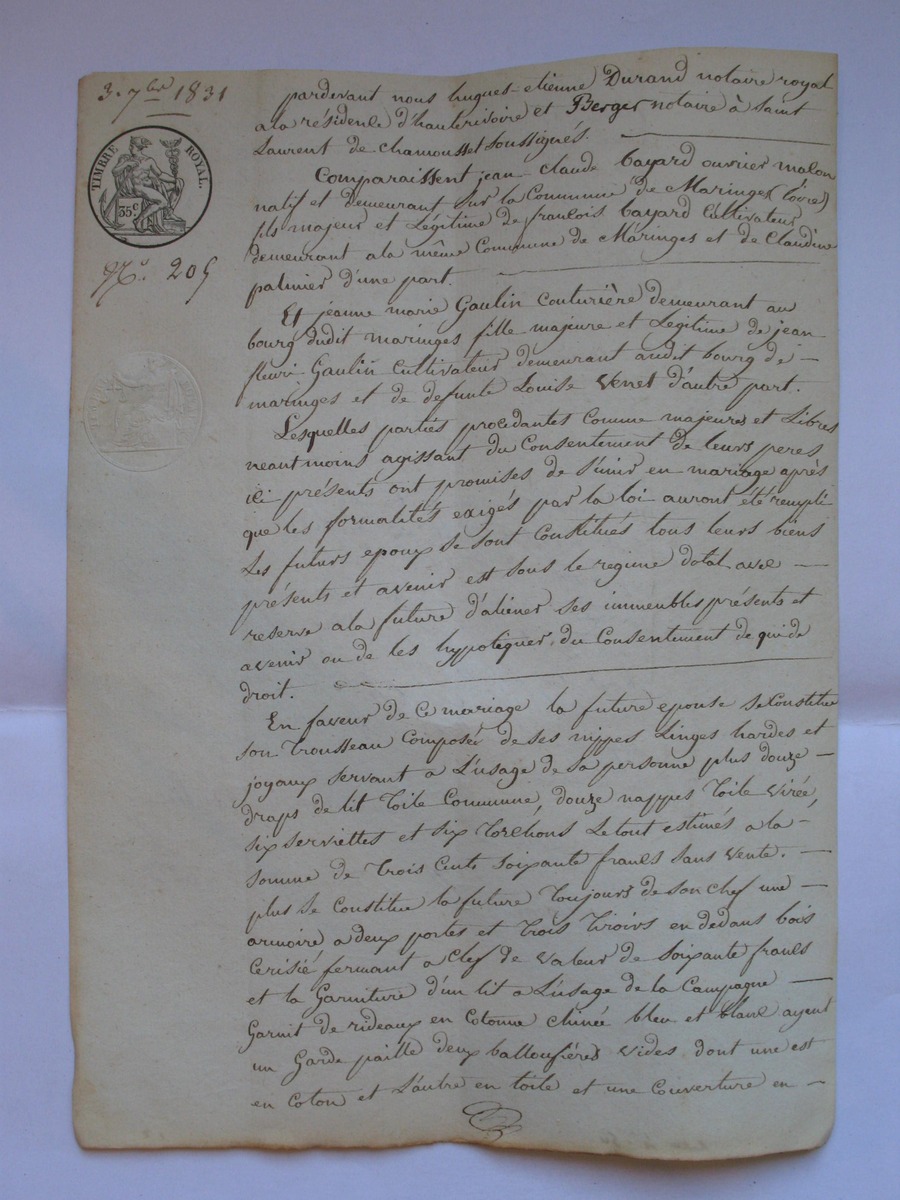 3. 7bre 1831
TIMBRE ROYAL.
35c
No. 205
pardevant nous hugues-etienne Durand notaire royal
ala résidence d'hauterivoire et Berger notaire à Saint
Laurent de chamousset soussignés.
Comparaissent jean claude bayard ouvrier maçon
natif et demeurant sur la Commune de Maringes (loire)
fils majeur et Légitime de francois bayard Cultivateur
demeurant ala même Commune de Maringes et de Claudine
palmier d'une part.
Et jeanne marie Gaulin Couturière demeurant au
bourg dudit maringes fille majeure et Légitime de jean
fleuri Gaulin Cultivateur demeurant audit bourg de —
maringes et de defunte Louise Venet d'autre part.
Lesquelles parties procedantes Comme majeures et Libres
neantmoins agissant du Consentement de leurs peres
ici présents ont promises de S'unir en mariage après
que les formalités exigés par la loi auront été rempli
Les futurs epoux se sont Constitués tous leurs biens
présents et avenir est sous le regime dotal avec —
reserve ala future d'aliener ses immeubles présents et
avenir ou de les hypotequer du Consentement de qui de
droit.
En faveur de Ce mariage la future epouse se Constitue
son Trousseau Composé de ses nippes Linges hardes et
joyaux servant a L'usage de sa personne plus douze —
draps de lit Toile Commune, douze nappes Toile Virée,
six serviettes et six Torchons Le tout estimés a la —
somme de Trois Cents soixante francs sans Vente. —
plus se Constitue la future Toujours de son chef une —
armoire a deux portes et Trois Tiroirs en dedans bois
Cerisié fermant a Clef de Valeur de soixante francs
et la Garniture d'un lit a L'usage de la Campagne —
Garnit de rideaux en Cotonne chinée bleu et blanc ayent
un Garde paille deux balloufières Vides dont une est
en Coton et L'autre en toile et une Couverture en —